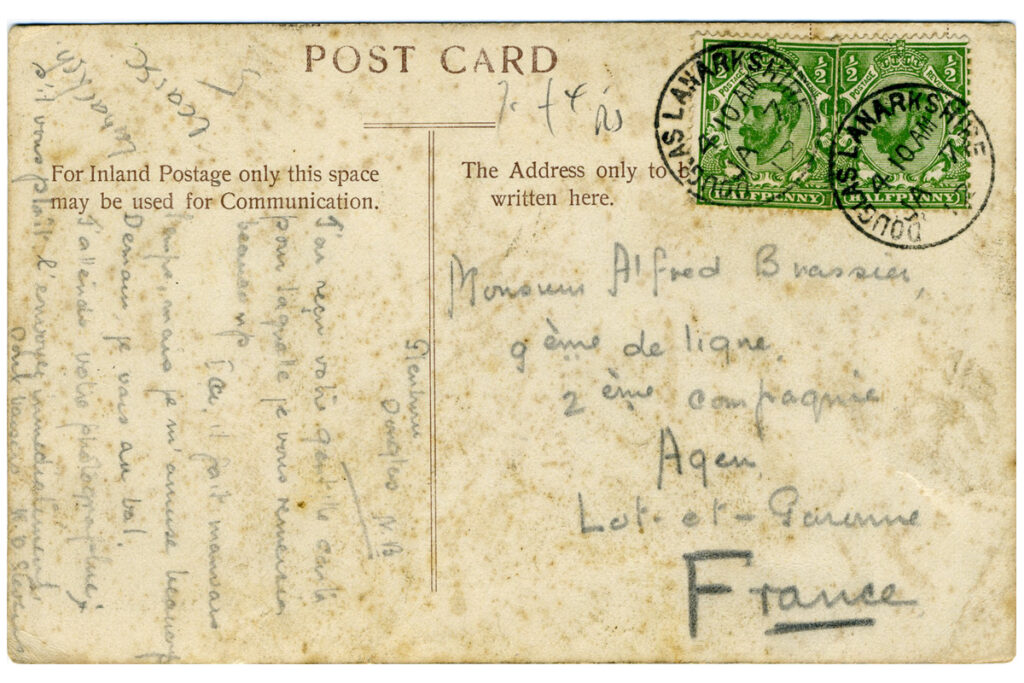 POST CARD
For Inland Postage only this space
may be used for Communication.
The Address only to be
written here.
POSTAGE
½ ½
HALFPENNY
POSTAGE
½ ½
HALFPENNY
DOUGLAS LANARKSHIRE
10 AM
4 JA
DOUGLAS LANARKSHIRE
10 AM
4 JA
Monsieur Alfred Brassier,
9ème de ligne
2ème compagnie
Agen
Lot-et-Garonne
France
Douglas NB
J'ai reçu votre gentille carte
pour laquelle je vous remercie
beaucoup Ici, il fait mauvais
temps, mais je m'amuse beaucoup
Demain je vais au bal.
J'attends votre photographie,
s'il vous plaît l'envoyez immédiatement